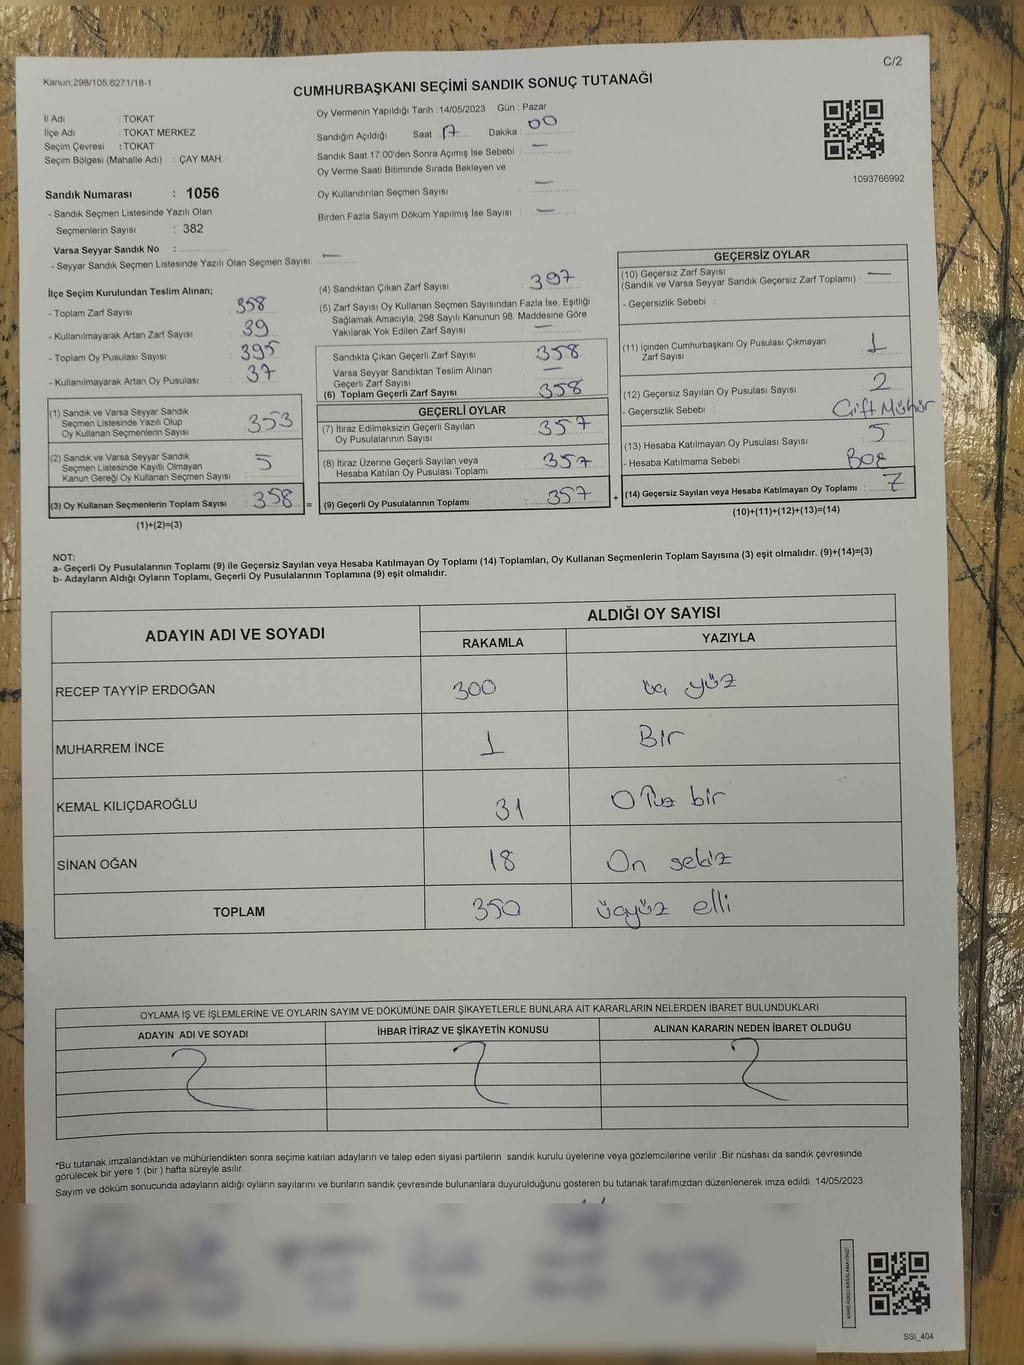 Kanun;298/105;6271/18-1
C/2
CUMHURBAŞKANI SEÇİMİ SANDIK SONUÇ TUTANAĞI
İl Adı : TOKAT
İlçe Adı : TOKAT MERKEZ
Seçim Çevresi : TOKAT
Seçim Bölgesi (Mahalle Adı) : ÇAY MAH.
Sandık Numarası : 1056
- Sandık Seçmen Listesinde Yazılı Olan
Seçmenlerin Sayısı : 382
Varsa Seyyar Sandık No :
- Seyyar Sandık Seçmen Listesinde Yazılı Olan Seçmen Sayısı : —
Oy Vermenin Yapıldığı Tarih : 14/05/2023 Gün : Pazar
Sandığın Açıldığı Saat : 17 Dakika : 00
Sandık Saat 17:00'den Sonra Açımış İse Sebebi : —
Oy Verme Saati Bitiminde Sırada Bekleyen ve
Oy Kullandırılan Seçmen Sayısı : —
Birden Fazla Sayım Döküm Yapılmış İse Sayısı : —
1093766992
İlçe Seçim Kurulundan Teslim Alınan;
- Toplam Zarf Sayısı : 358
- Kullanılmayarak Artan Zarf Sayısı : 39
- Toplam Oy Pusulası Sayısı : 395
- Kullanılmayarak Artan Oy Pusulası : 37
(1) Sandık ve Varsa Seyyar Sandık
Seçmen Listesinde Yazılı Olup
Oy Kullanan Seçmenlerin Sayısı : 353
(2) Sandık ve Varsa Seyyar Sandık
Seçmen Listesinde Kayıtlı Olmayan
Kanun Gereği Oy Kullanan Seçmen Sayısı : 5
(3) Oy Kullanan Seçmenlerin Toplam Sayısı : 358 =
(1)+(2)=(3)
(4) Sandıktan Çıkan Zarf Sayısı : 397
(5) Zarf Sayısı Oy Kullanan Seçmen Sayısından Fazla İse, Eşitliği
Sağlamak Amacıyla; 298 Sayılı Kanunun 98. Maddesine Göre
Yakılarak Yok Edilen Zarf Sayısı : —
Sandıkta Çıkan Geçerli Zarf Sayısı : 358
Varsa Seyyar Sandıktan Teslim Alınan
Geçerli Zarf Sayısı : —
(6) Toplam Geçerli Zarf Sayısı : 358
GEÇERLİ OYLAR
(7) İtiraz Edilmeksizin Geçerli Sayılan
Oy Pusulalarının Sayısı : 357
(8) İtiraz Üzerine Geçerli Sayılan veya
Hesaba Katılan Oy Pusulası Toplamı : 357
(9) Geçerli Oy Pusulalarının Toplamı : 357 +
GEÇERSİZ OYLAR
(10) Geçersiz Zarf Sayısı
(Sandık ve Varsa Seyyar Sandık Geçersiz Zarf Toplamı) : —
- Geçersizlik Sebebi :
(11) İçinden Cumhurbaşkanı Oy Pusulası Çıkmayan
Zarf Sayısı : 1
(12) Geçersiz Sayılan Oy Pusulası Sayısı : 2
- Geçersizlik Sebebi : Çift Mühür
(13) Hesaba Katılmayan Oy Pusulası Sayısı : 5
- Hesaba Katılmama Sebebi : Boş
(14) Geçersiz Sayılan veya Hesaba Katılmayan Oy Toplamı : 7
(10)+(11)+(12)+(13)=(14)
NOT:
a- Geçerli Oy Pusulalarının Toplamı (9) ile Geçersiz Sayılan veya Hesaba Katılmayan Oy Toplamı (14) Toplamları, Oy Kullanan Seçmenlerin Toplam Sayısına (3) eşit olmalıdır. (9)+(14)=(3)
b- Adayların Aldığı Oyların Toplamı, Geçerli Oy Pusulalarının Toplamına (9) eşit olmalıdır.
ADAYIN ADI VE SOYADI
ALDIĞI OY SAYISI
RAKAMLA YAZIYLA
RECEP TAYYİP ERDOĞAN 300 üç yüz
MUHARREM İNCE 1 Bir
KEMAL KILIÇDAROĞLU 31 Otuz bir
SİNAN OĞAN 18 On sekiz
TOPLAM 350 üçyüz elli
OYLAMA İŞ VE İŞLEMLERİNE VE OYLARIN SAYIM VE DÖKÜMÜNE DAİR ŞİKAYETLERLE BUNLARA AİT KARARLARIN NELERDEN İBARET BULUNDUKLARI
ADAYIN ADI VE SOYADI İHBAR İTİRAZ VE ŞİKAYETİN KONUSU ALINAN KARARIN NEDEN İBARET OLDUĞU
*Bu tutanak imzalandıktan ve mühürlendikten sonra seçime katılan adayların ve talep eden siyasi partilerin sandık kurulu üyelerine veya gözlemcilerine verilir .Bir nüshası da sandık çevresinde
görülecek bir yere 1 (bir ) hafta süreyle asılır.
Sayım ve döküm sonucunda adayların aldığı oyların sayılarını ve bunların sandık çevresinde bulunanlara duyurulduğunu gösteren bu tutanak tarafımızdan düzenlenerek imza edildi. 14/05/2023
KARE KODU KARALAMAYINIZ!
SSI_404